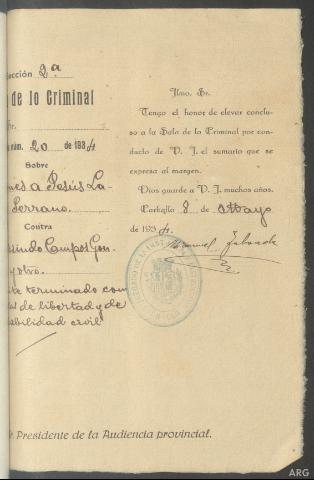 Sección 2ª
de lo Criminal
núm. 20 de 1934
Sobre
a Jesús La-
Serrano.
Contra
Campos Gon-
y otro.
terminado con
de libertad y de
civil
Ilmo. Sr.
Tengo el honor de elevar conclu-
so a la Sala de lo Criminal por con-
ducto de V. I. el sumario que se
expresa al margen.
Dios guarde a V. I. muchos años.
Carballo 8 de Mayo
de 1934.
Manuel
Presidente de la Audiencia provincial.
ARG